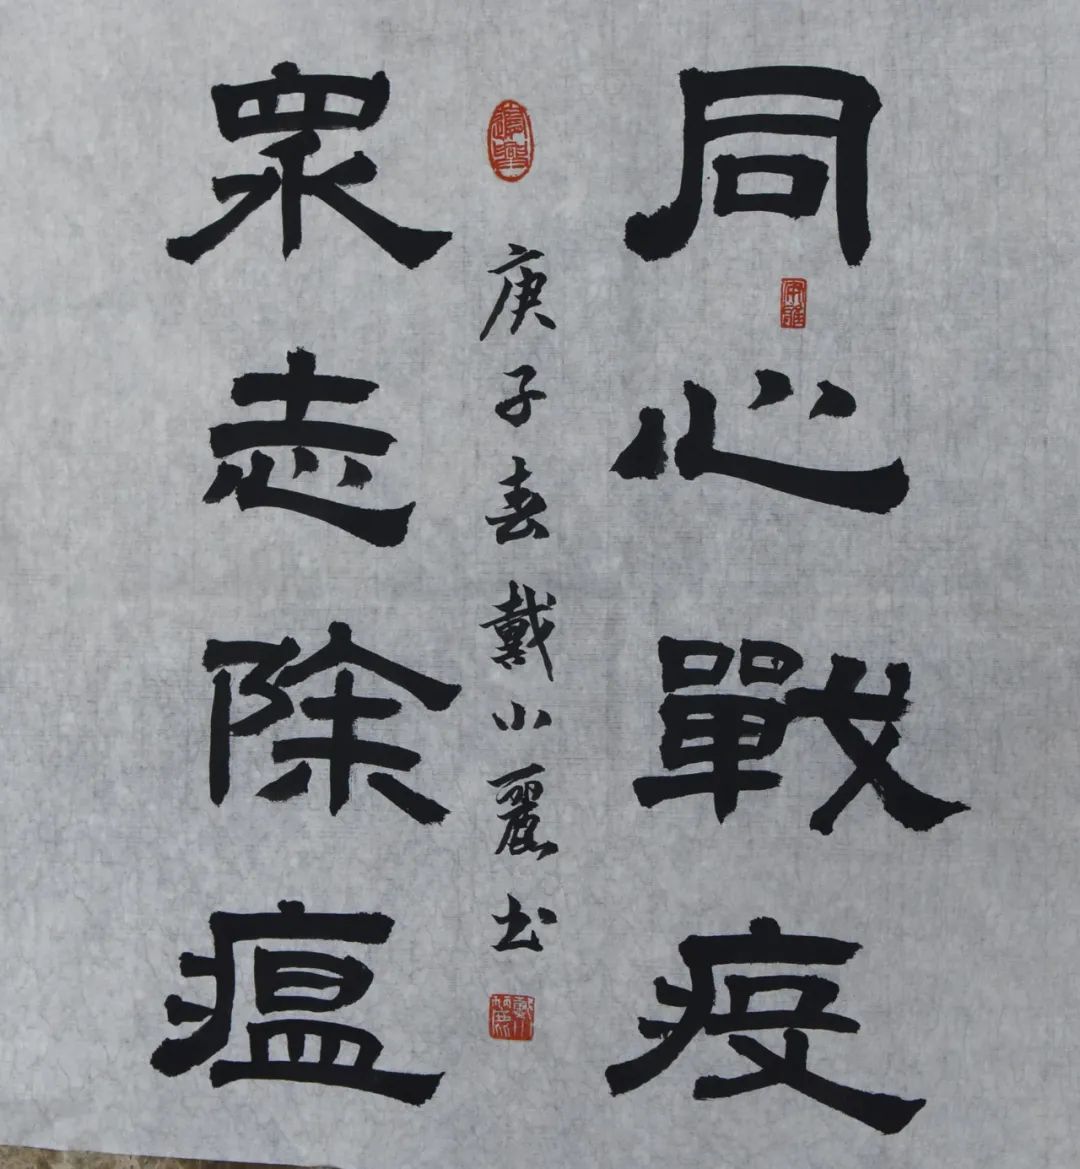 同心戰疫
眾志除瘟
庚子春戴小麗书